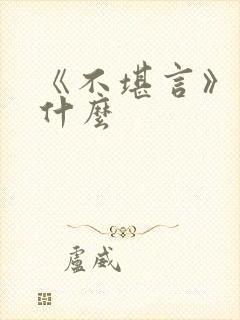 《不堪言》
什麼
盧威